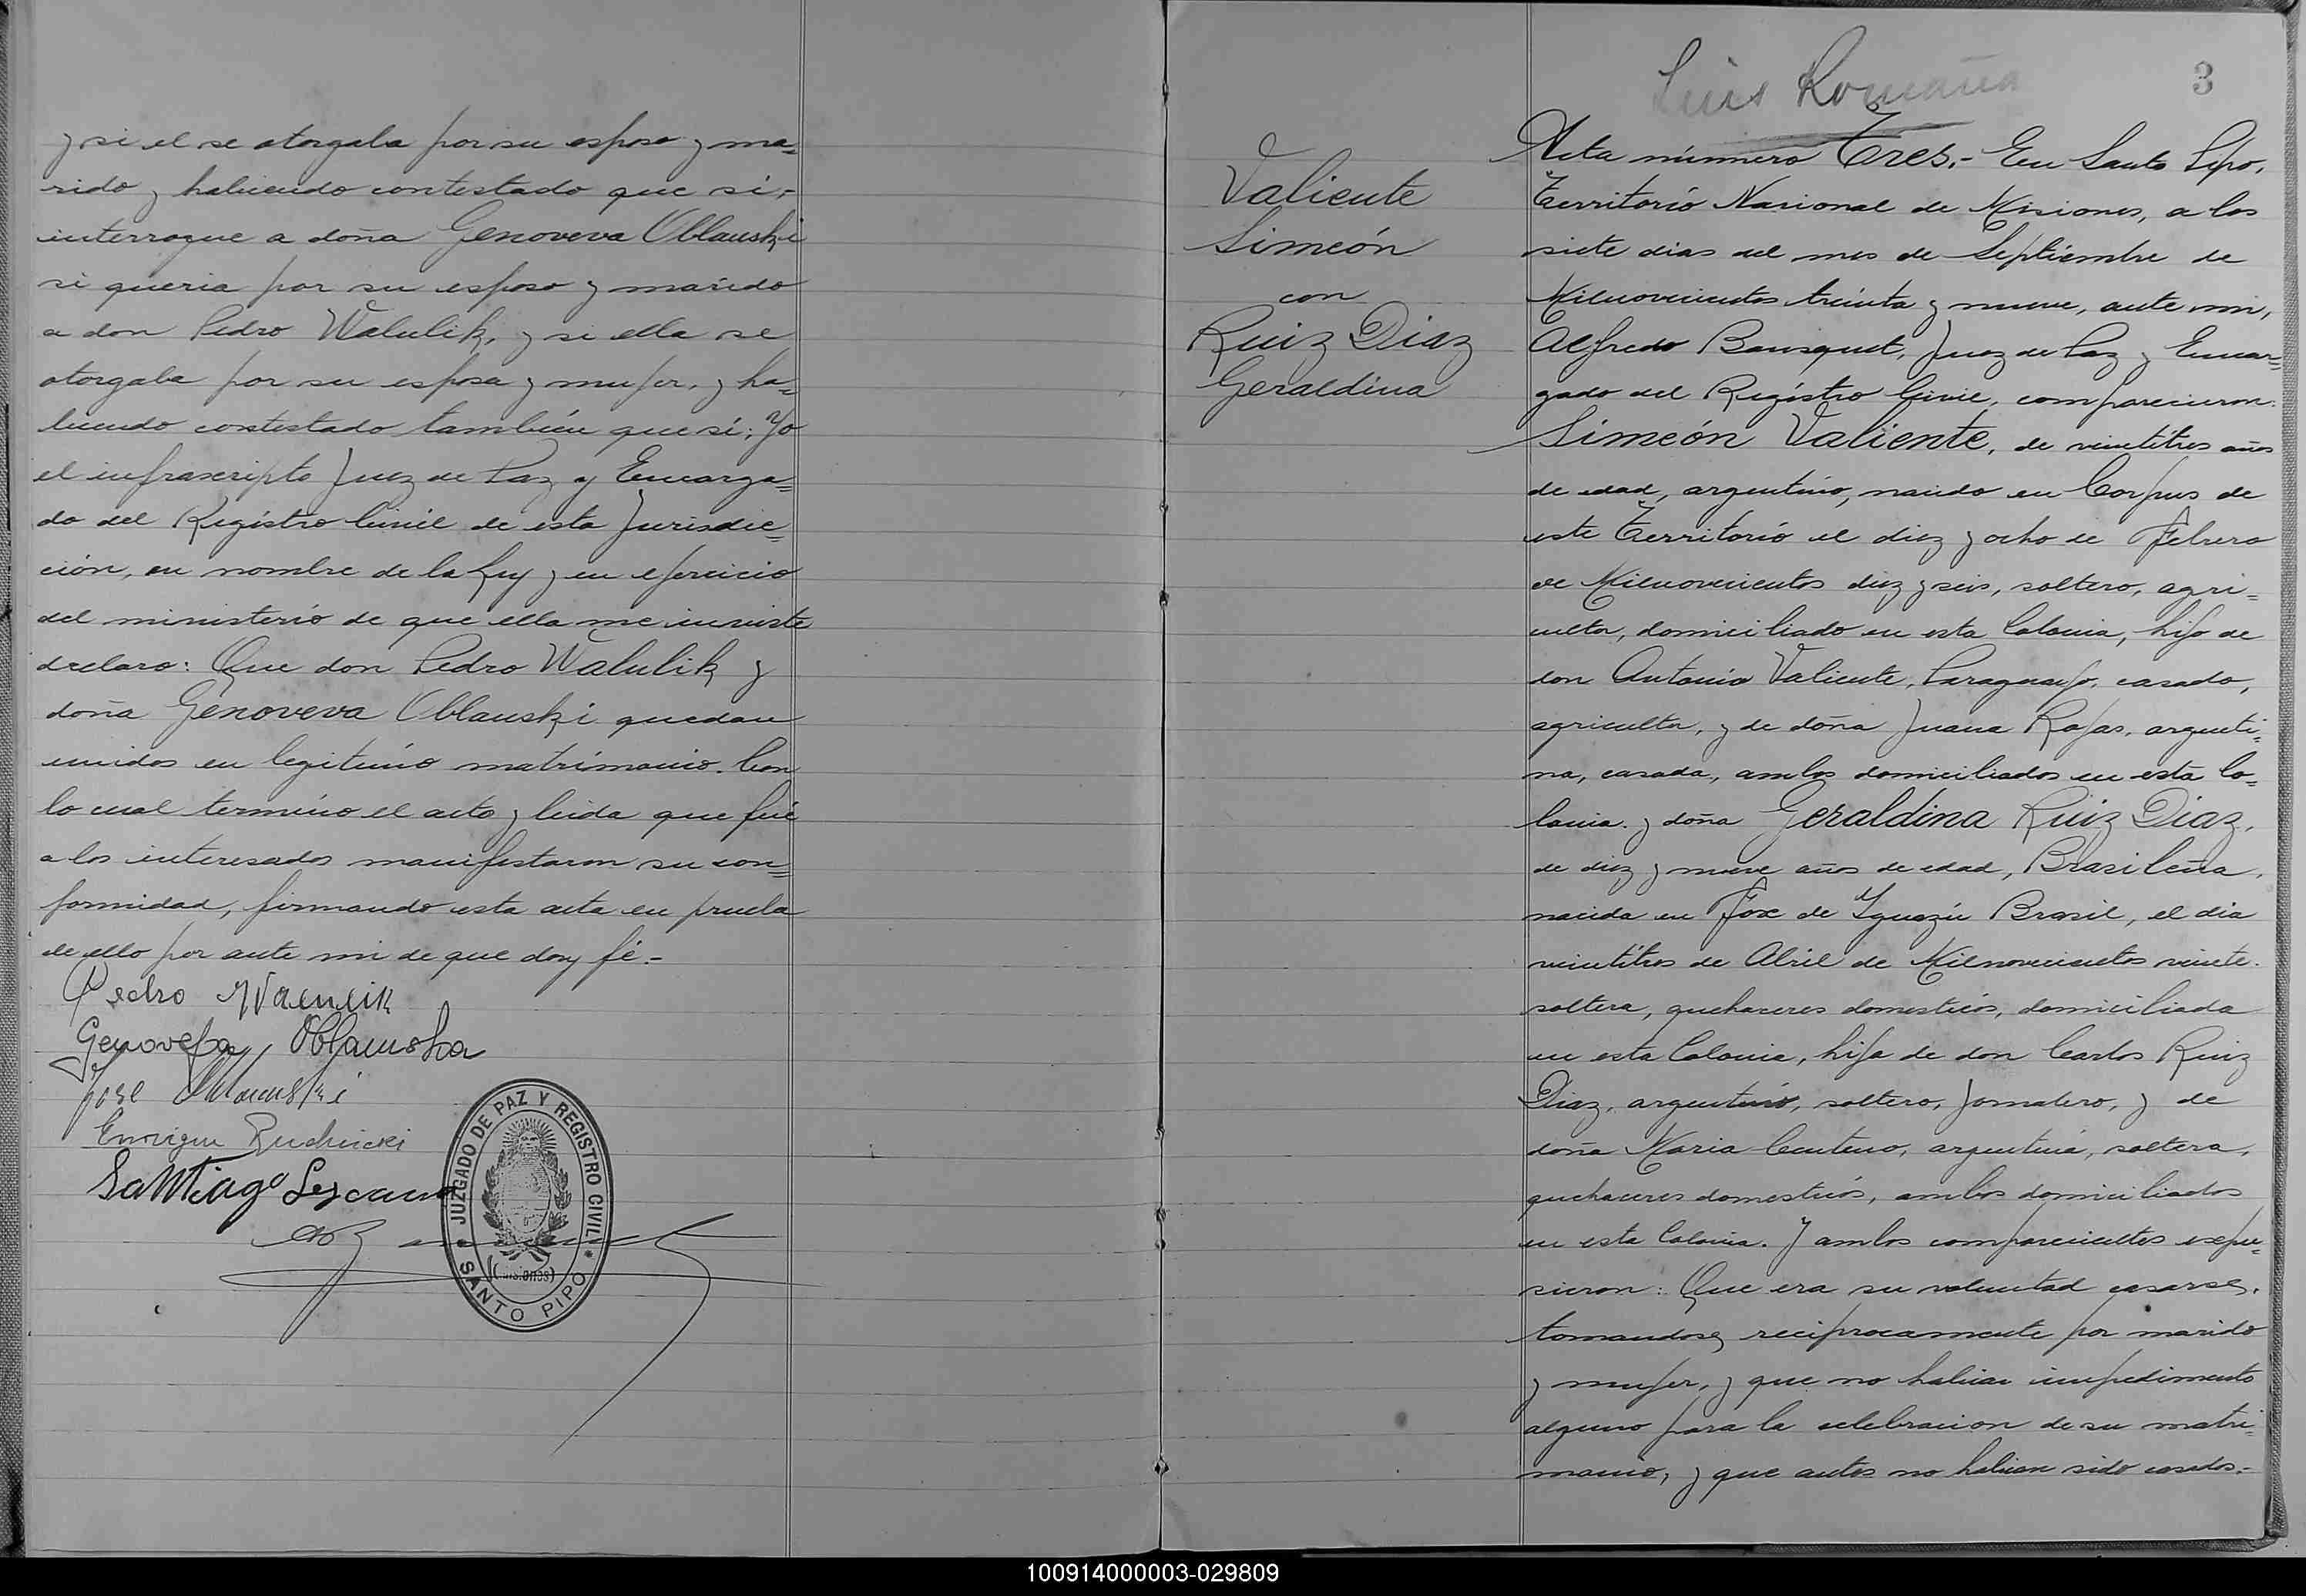 y si el se otorgaba por su esposo y ma=
rido y habiendo contestado que si,-
interrogue a doña Genoveva Oblauski
si queria por su esposo y marido
a don Pedro Walulik, y si ella se
otorgaba por su esposa y mujer, y ha=
biendo contestado también que si; Yo
el infrascripto Juez de Paz y Encarga=
do del Registro Civil de esta Jurisdic=
ción, en nombre de la Ley y en ejercicio
del ministerio de que ella me inviste
declaro: Que don Pedro Walulik y
doña Genoveva Oblauski quedan
unidos en legitimo matrimonio. Con
lo cual termino el acto y leida que fué
a los interesados manifestaron su con=
formidad, firmando esta acta en prueba
de ello por ante mi de que doy fé.-
Pedro Walulik
Genovefa Oblauska
Jose Oblauski
Enrique Rudnicki
Santiago Lezcano
JUZGADO DE PAZ Y REGISTRO CIVIL
(Misiones)
SANTO PIPO
Luis Romaña
3
Valiente
Simeón
con
Ruiz Diaz
Geraldina
Acta número Tres.- En Santo Pipo,
Territorio Nacional de Misiones, a los
siete dias del mes de Septiembre de
Milnovecientos treinta y nueve, ante mi,
Alfredo Bousquet, Juez de Paz y Encar=
gado del Registro Civil, comparecieron:
Simeón Valiente, de veintitres años
de edad, argentino, nacido en Corpus de
este Territorio el diez y ocho de Febrero
de Milnovecientos diez y seis, soltero, agri=
cultor, domiciliado en esta Colonia, hijo de
don Antonio Valiente, Paraguayo, casado,
agricultor, y de doña Juana Rojas, argenti=
na, casada, ambos domiciliados en esta Co=
lonia. y doña Geraldina Ruiz Diaz,
de diez y nueve años de edad, Brasileña,
nacida en Fox de Yguazú Brasil, el dia
veintitres de Abril de Milnovecientos veinte.
soltera, quehaceres domesticos, domiciliada
en esta Colonia, hija de don Carlos Ruiz
Diaz, argentino, soltero, jornalero, y de
doña Maria Centeno, argentina, soltera,
quehaceres domesticos, ambos domiciliados
en esta Colonia. Y ambos comparecientes expu=
sieron: Que era su voluntad casarse,
tomandose reciprocamente por marido
y mujer, y que no habian impedimento
alguno para la celebracion de su matri=
monio, y que antes no habian sido casados.-
100914000003-029809